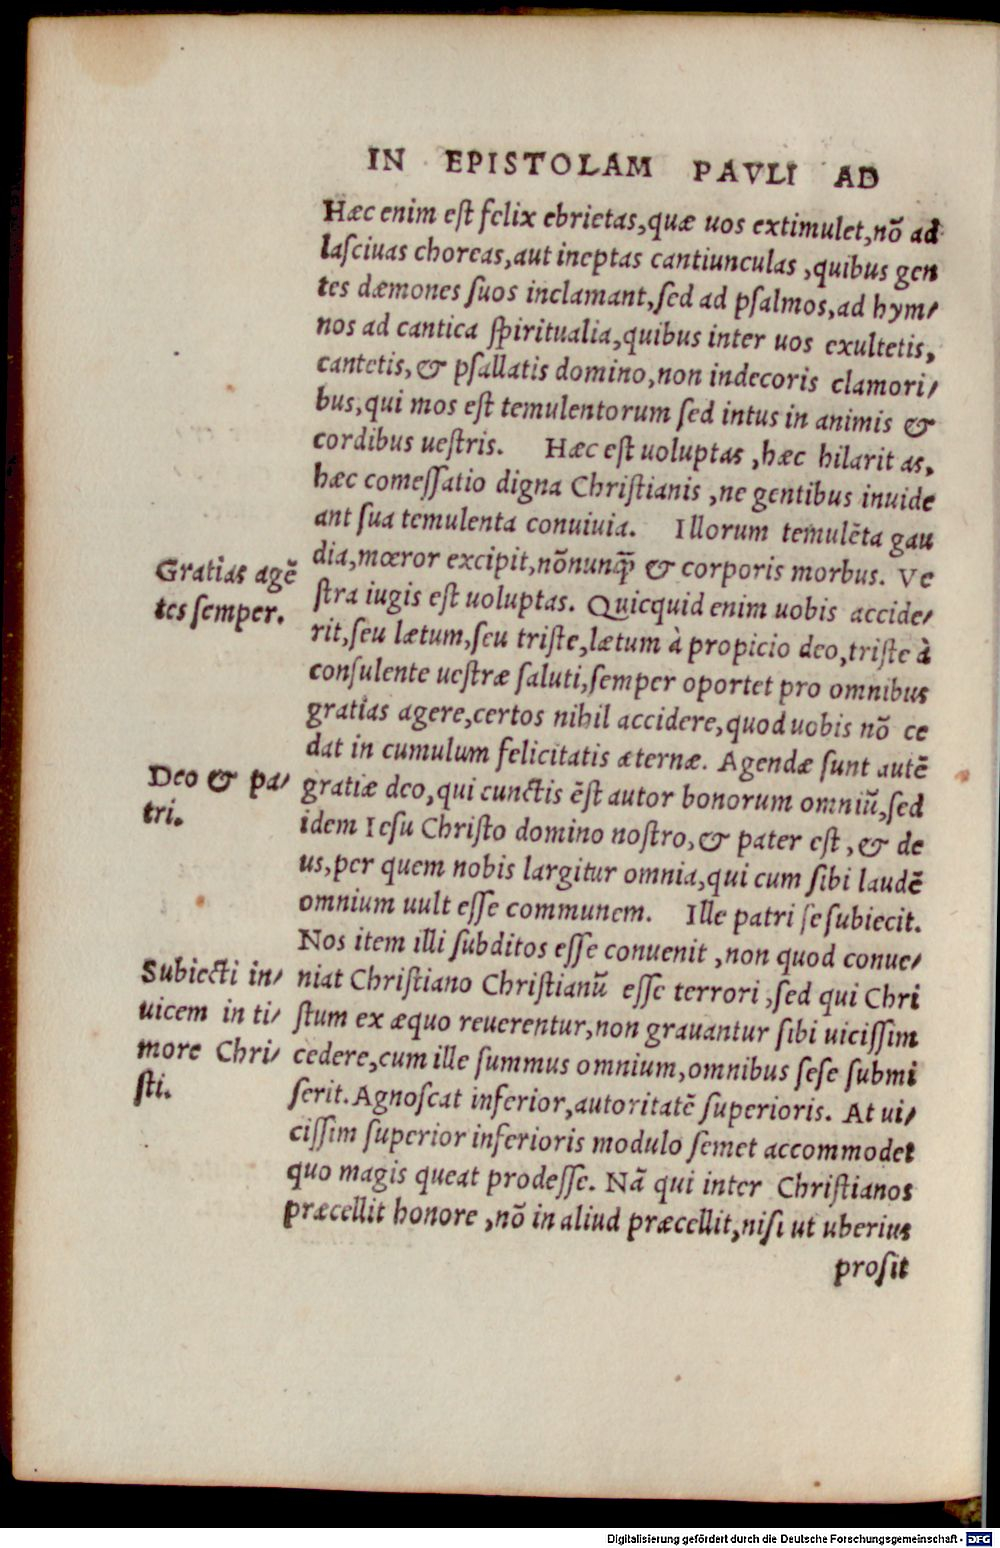 IN EPISTOLAM PAVLI AD
Hæc enim est felix ebrietas, quæ uos extimulet, nō ad
lasciuas choreas, aut ineptas cantiunculas, quibus gen
tes dæmones suos inclamant, sed ad psalmos, ad hym/
nos ad cantica spiritualia, quibus inter uos exultetis,
cantetis, & psallatis domino, non indecoris clamori/
bus, qui mos est temulentorum sed intus in animis &
cordibus uestris. Hæc est uoluptas, hæc hilarit as,
hæc comessatio digna Christianis, ne gentibus inuide
ant sua temulenta conuiuia. Illorum temulēta gau
dia, mœror excipit, nōnunq̄ & corporis morbus. Ve
Gratias agē
tes semper.
stra iugis est uoluptas. Quicquid enim uobis accide/
rit, seu lætum, seu triste, lætum à propicio deo, triste à
consulente uestræ saluti, semper oportet pro omnibus
gratias agere, certos nihil accidere, quod uobis nō ce
dat in cumulum felicitatis æternæ. Agendæ sunt autē
Deo & pa/
tri.
gratiæ deo, qui cunctis ēst autor bonorum omniū, sed
idem Iesu Christo domino nostro, & pater est, & de
us, per quem nobis largitur omnia, qui cum sibi laudē
omnium uult esse communem. Ille patri se subiecit.
Nos item illi subditos esse conuenit, non quod conue/
Subiecti in/
uicem in ti/
more Chri/
sti.
niat Christiano Christianū esse terrori, sed qui Chri
stum ex æquo reuerentur, non grauantur sibi uicissim
cedere, cum ille summus omnium, omnibus sese submi
serit. Agnoscat inferior, autoritatē superioris. At ui/
cissim superior inferioris modulo semet accommodet
quo magis queat prodesse. Nā qui inter Christianos
præcellit honore, nō in aliud præcellit, nisi ut uberius
prosit
Digitalisierung gefördert durch die Deutsche Forschungsgemeinschaft - DFG